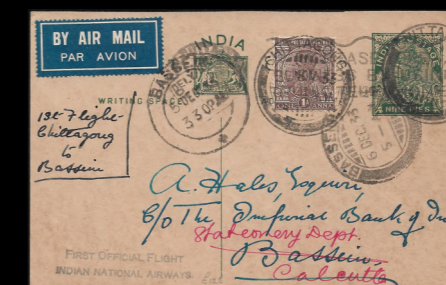 BY AIR MAIL
PAR AVION
INDIA
WRITING SPACE
1st Flight
Chittagong
to
Bassein
BASSEIN
A. Hales, Esquire,
C/o The Imperial Bank of In
Stationery Dept.
Bassein.
Calcutta
FIRST OFFICIAL FLIGHT
INDIAN NATIONAL AIRWAYS.